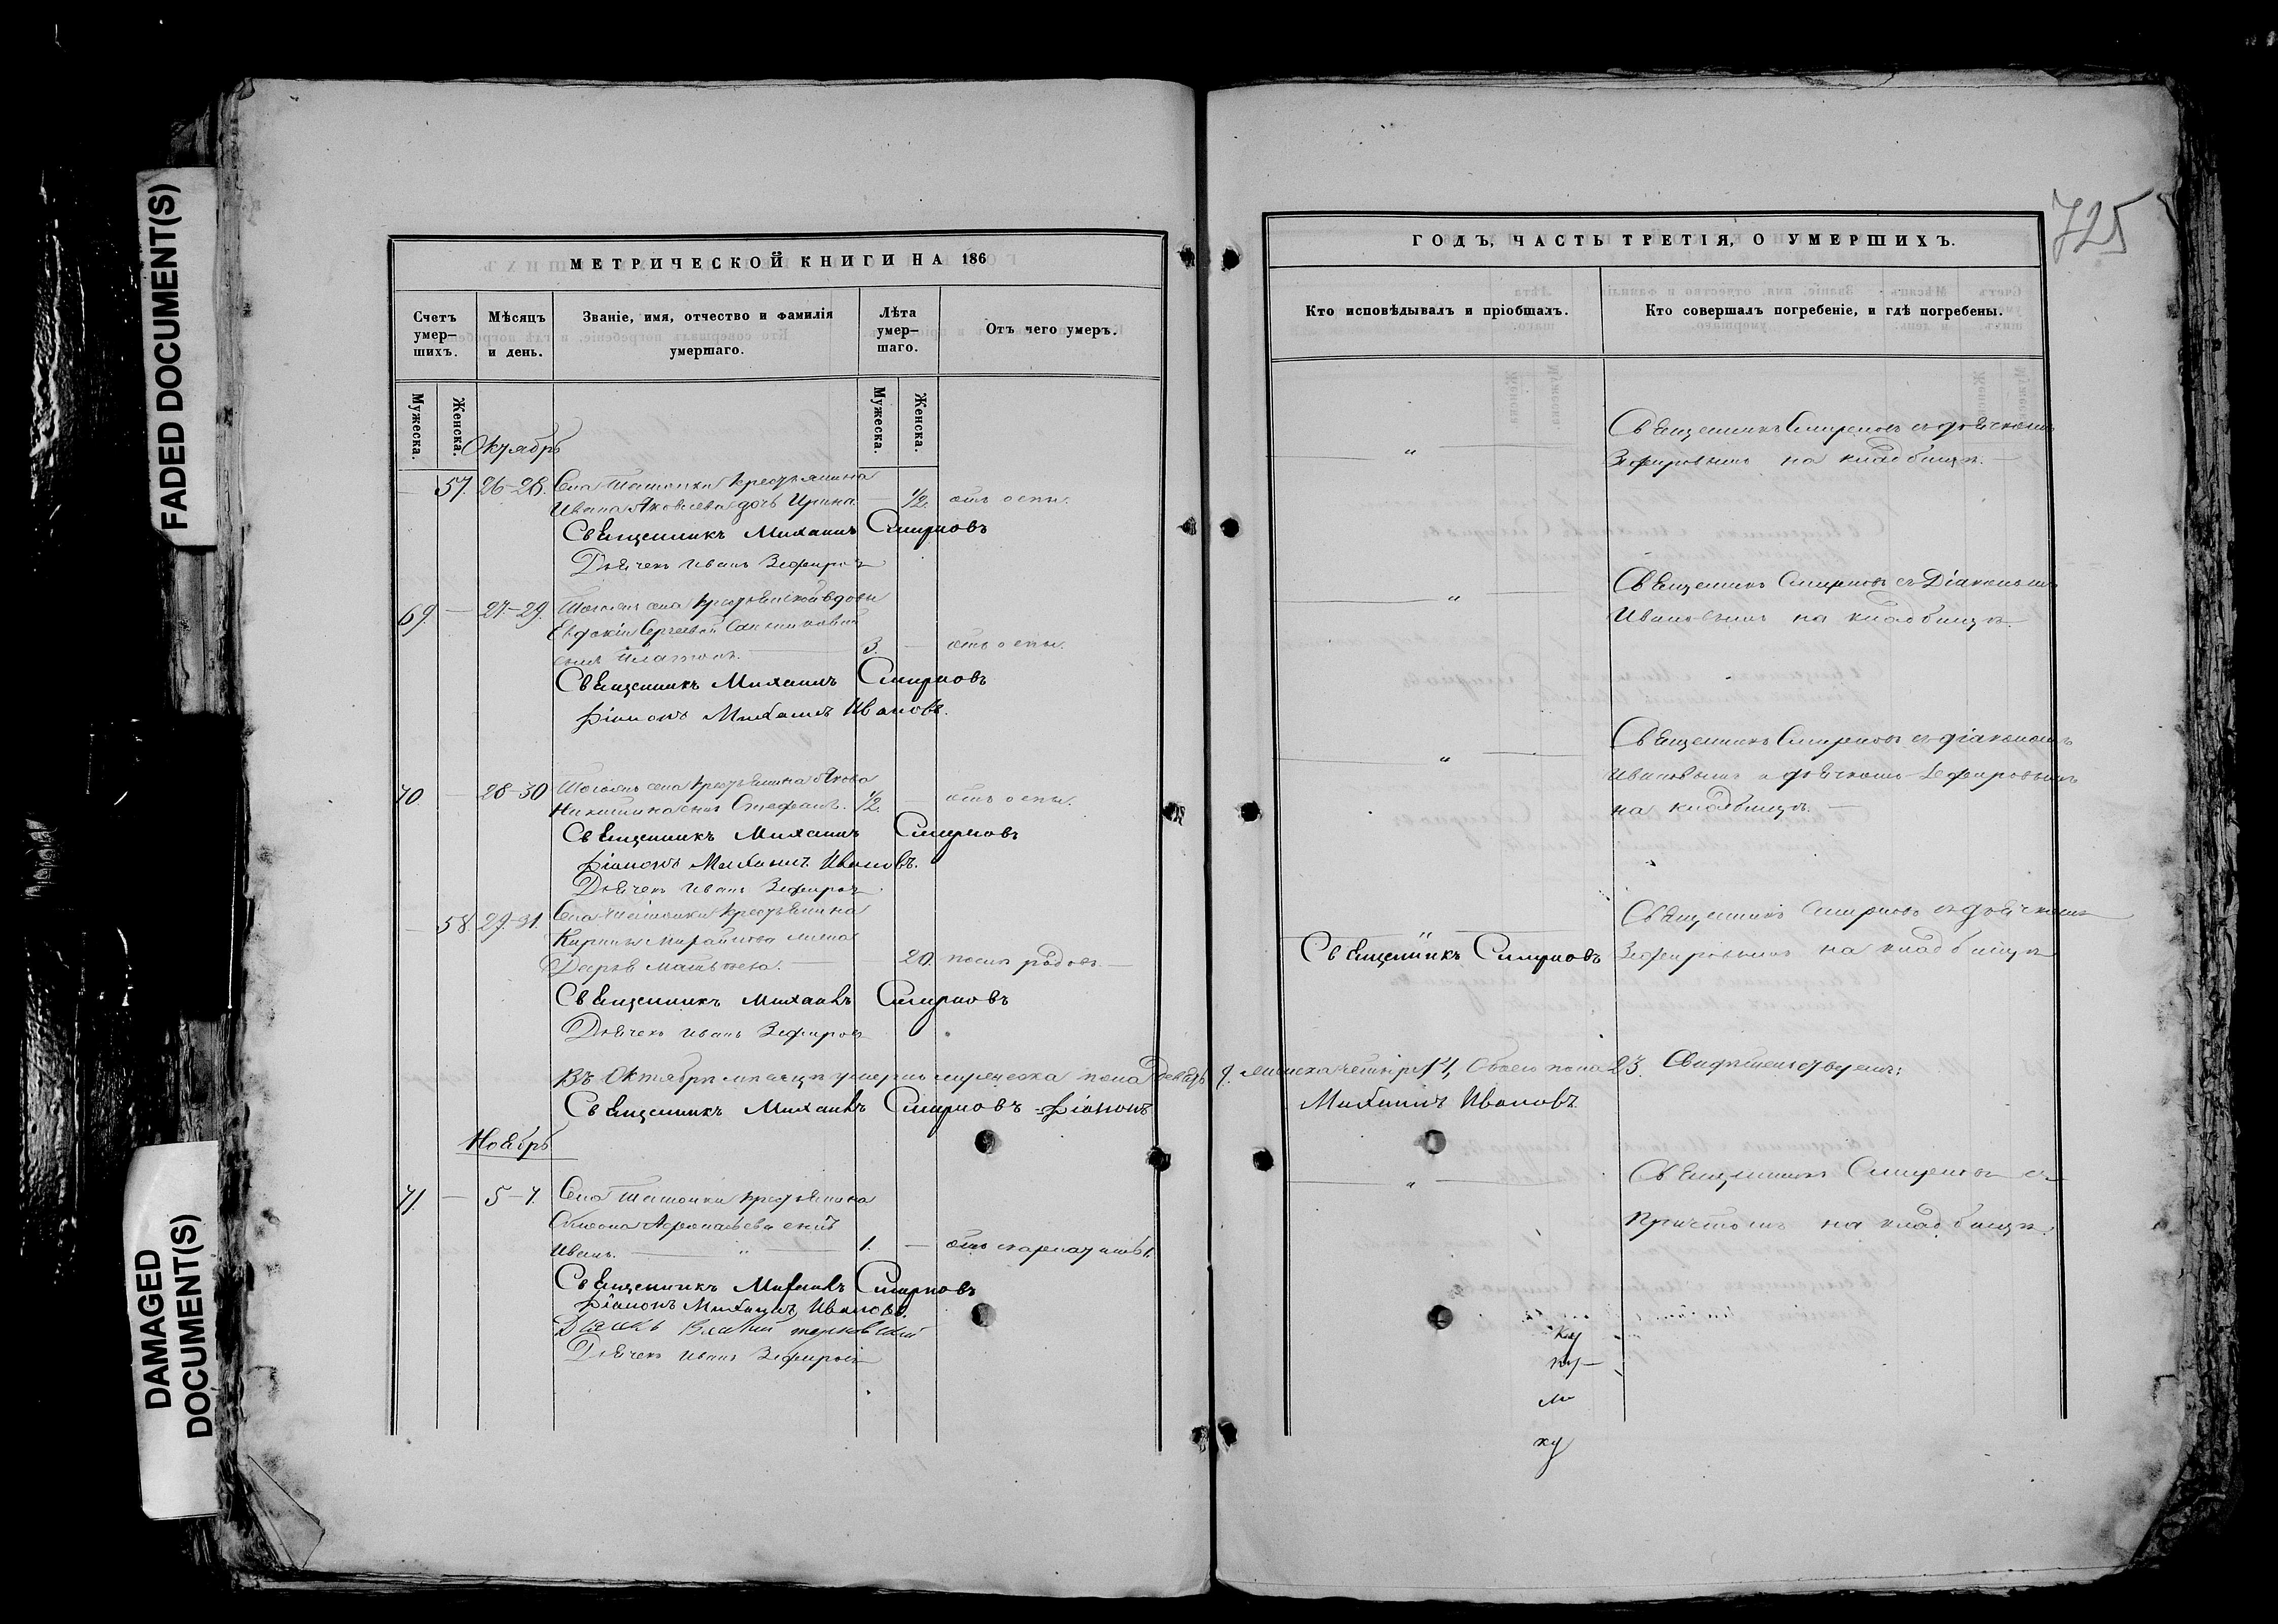 FADED DOCUMENT(S)
DAMAGED DOCUMENT(S)
МЕТРИЧЕСКОЙ КНИГИ НА 186
Счетъ умер-шихъ.
Мѣсяцъ и день.
Званіе, имя, отчество и фамилія умершаго.
Лѣта умер-шаго.
Отъ чего умеръ.
Мужеска.
Женска.
Мужеска.
Женска.
Октябрь
57. 26-28. Села крестьянина
Ивана Яковлева дочь Ирина. — 1/2. отъ оспы.
Священникъ Михаилъ Смирновъ
Дьячекъ Иванъ Зефировъ
69. — 27-29. села крестьянской вдовы
Евдокіи Сергѣевой
сынъ Платонъ. 3. — отъ оспы.
Священникъ Михаилъ Смирновъ
Діаконъ Михаилъ Ивановъ.
70 — 28-30 села крестьянина Якова
Никитина сынъ Стефанъ. 1/2. — отъ оспы.
Священникъ Михаилъ Смирновъ
Діаконъ Михаилъ Ивановъ.
Дьячекъ Иванъ Зефировъ.
— 58 29-31. Села крестьянина
Кирилы Михайлова жена
Дарья Матвѣева. — 20. послѣ родовъ. —
Священникъ Михаилъ Смирновъ
Дьячекъ Иванъ Зефировъ
Въ Октябрѣ мѣсяцѣ умерло мужеска пола девять
Священникъ Михаилъ Смирновъ Діаконъ
Ноябрь
71. — 5-7. Села крестьянина
Симеона сынъ
Иванъ. — " — 1. —
Священникъ Михаилъ Смирновъ
Діаконъ Михаилъ Ивановъ.
Дьячекъ Иванъ Зефировъ
725
ГОДЪ, ЧАСТЬ ТРЕТІЯ, О УМЕРШИХЪ.
Кто исповѣдывалъ и пріобщалъ.
Кто совершалъ погребеніе, и гдѣ погребены.
" Священникъ Смирновъ съ дьячкомъ
Зефировымъ на кладбищѣ. —
" Священникъ Смирновъ съ Діакономъ
Ивановымъ на кладбищѣ.
" Священникъ Смирновъ съ діакономъ
Ивановымъ и дьячкомъ Зефировымъ
на кладбищѣ. —
" Священникъ Смирновъ съ дьячкомъ
Священникъ Смирновъ Зефировымъ на кладбищѣ
9. женска четырн. 14, Обоего пола 23. Свидѣтельствуемъ:
Михаилъ Ивановъ.
" Священникъ Смирновъ съ
причтомъ на кладбищѣ.